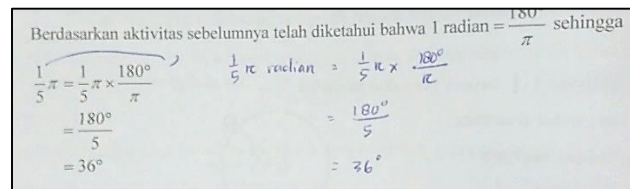 Berdasarkan aktivitas sebelumnya telah diketahui bahwa 1 radian = 180°/π sehingga
1/5 π = 1/5 π × 180°/π
= 180°/5
= 36°
1/5 π radian = 1/5 π × 180°/π
= 180°/5
= 36°